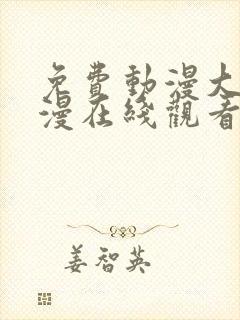 免費動漫大
漫在綫觀看
姜智英